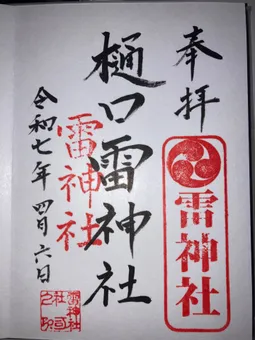 奉拝
雷神社
樋口雷神社
雷神社
令和七年四月六日